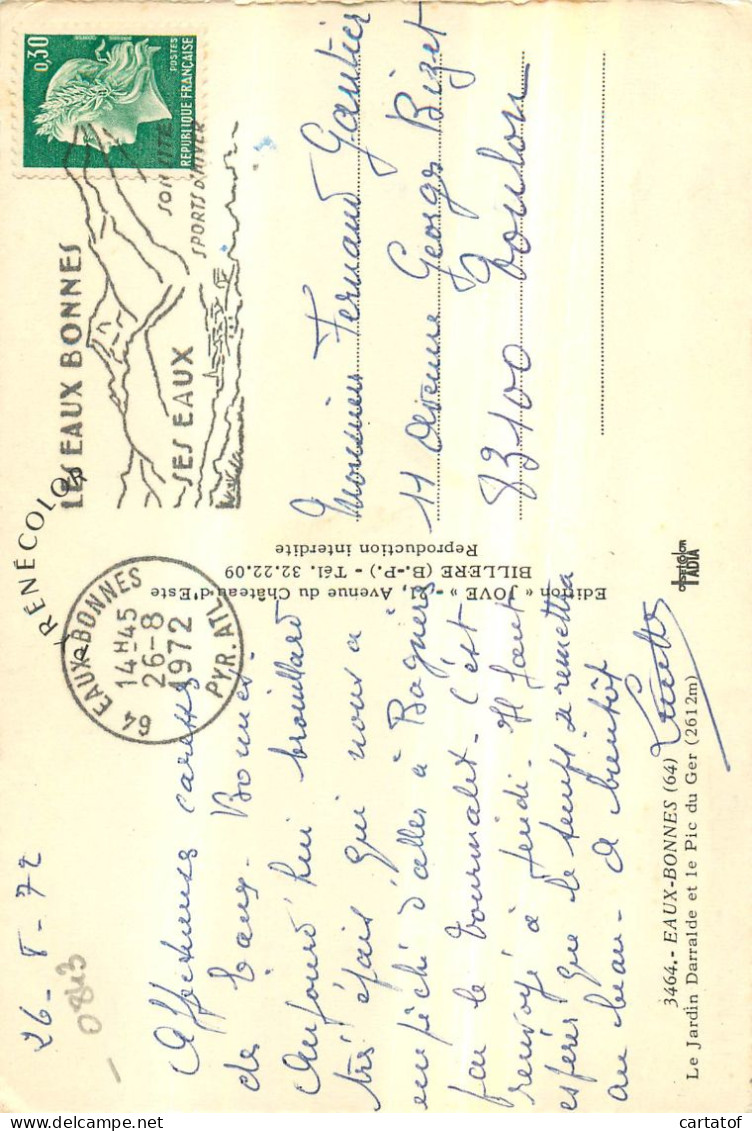 26-8-72
0813
Affectueuses caresses
des Eaux-Bonnes.
Aujourd'hui brouillard
très épais qui nous a
empêché d'aller à Bagnères
par le Tourmalet. C'est
renvoyé à jeudi. Il faut
espérer que le temps se remettra
au beau. A bientôt
Lucette
3464.- EAUX-BONNES (64)
Le Jardin Darralde et le Pic du Ger (2612m)
RENÉCOLOR
64 EAUX-BONNES
14H45
26-8
1972
PYR. ATL.
LES EAUX BONNES
SES EAUX
SON
SPORTS D'HIVER
0,30
POSTES
REPUBLIQUE FRANÇAISE
Edition « JOVE » - , Avenue du Château d'Este
BILLERE (B.-P.) - Tél. 32.22.09
Reproduction interdite
IADIA
Monsieur Fernand Gautier
11 Avenue Georges Bizet
83100 Toulon
cartatof